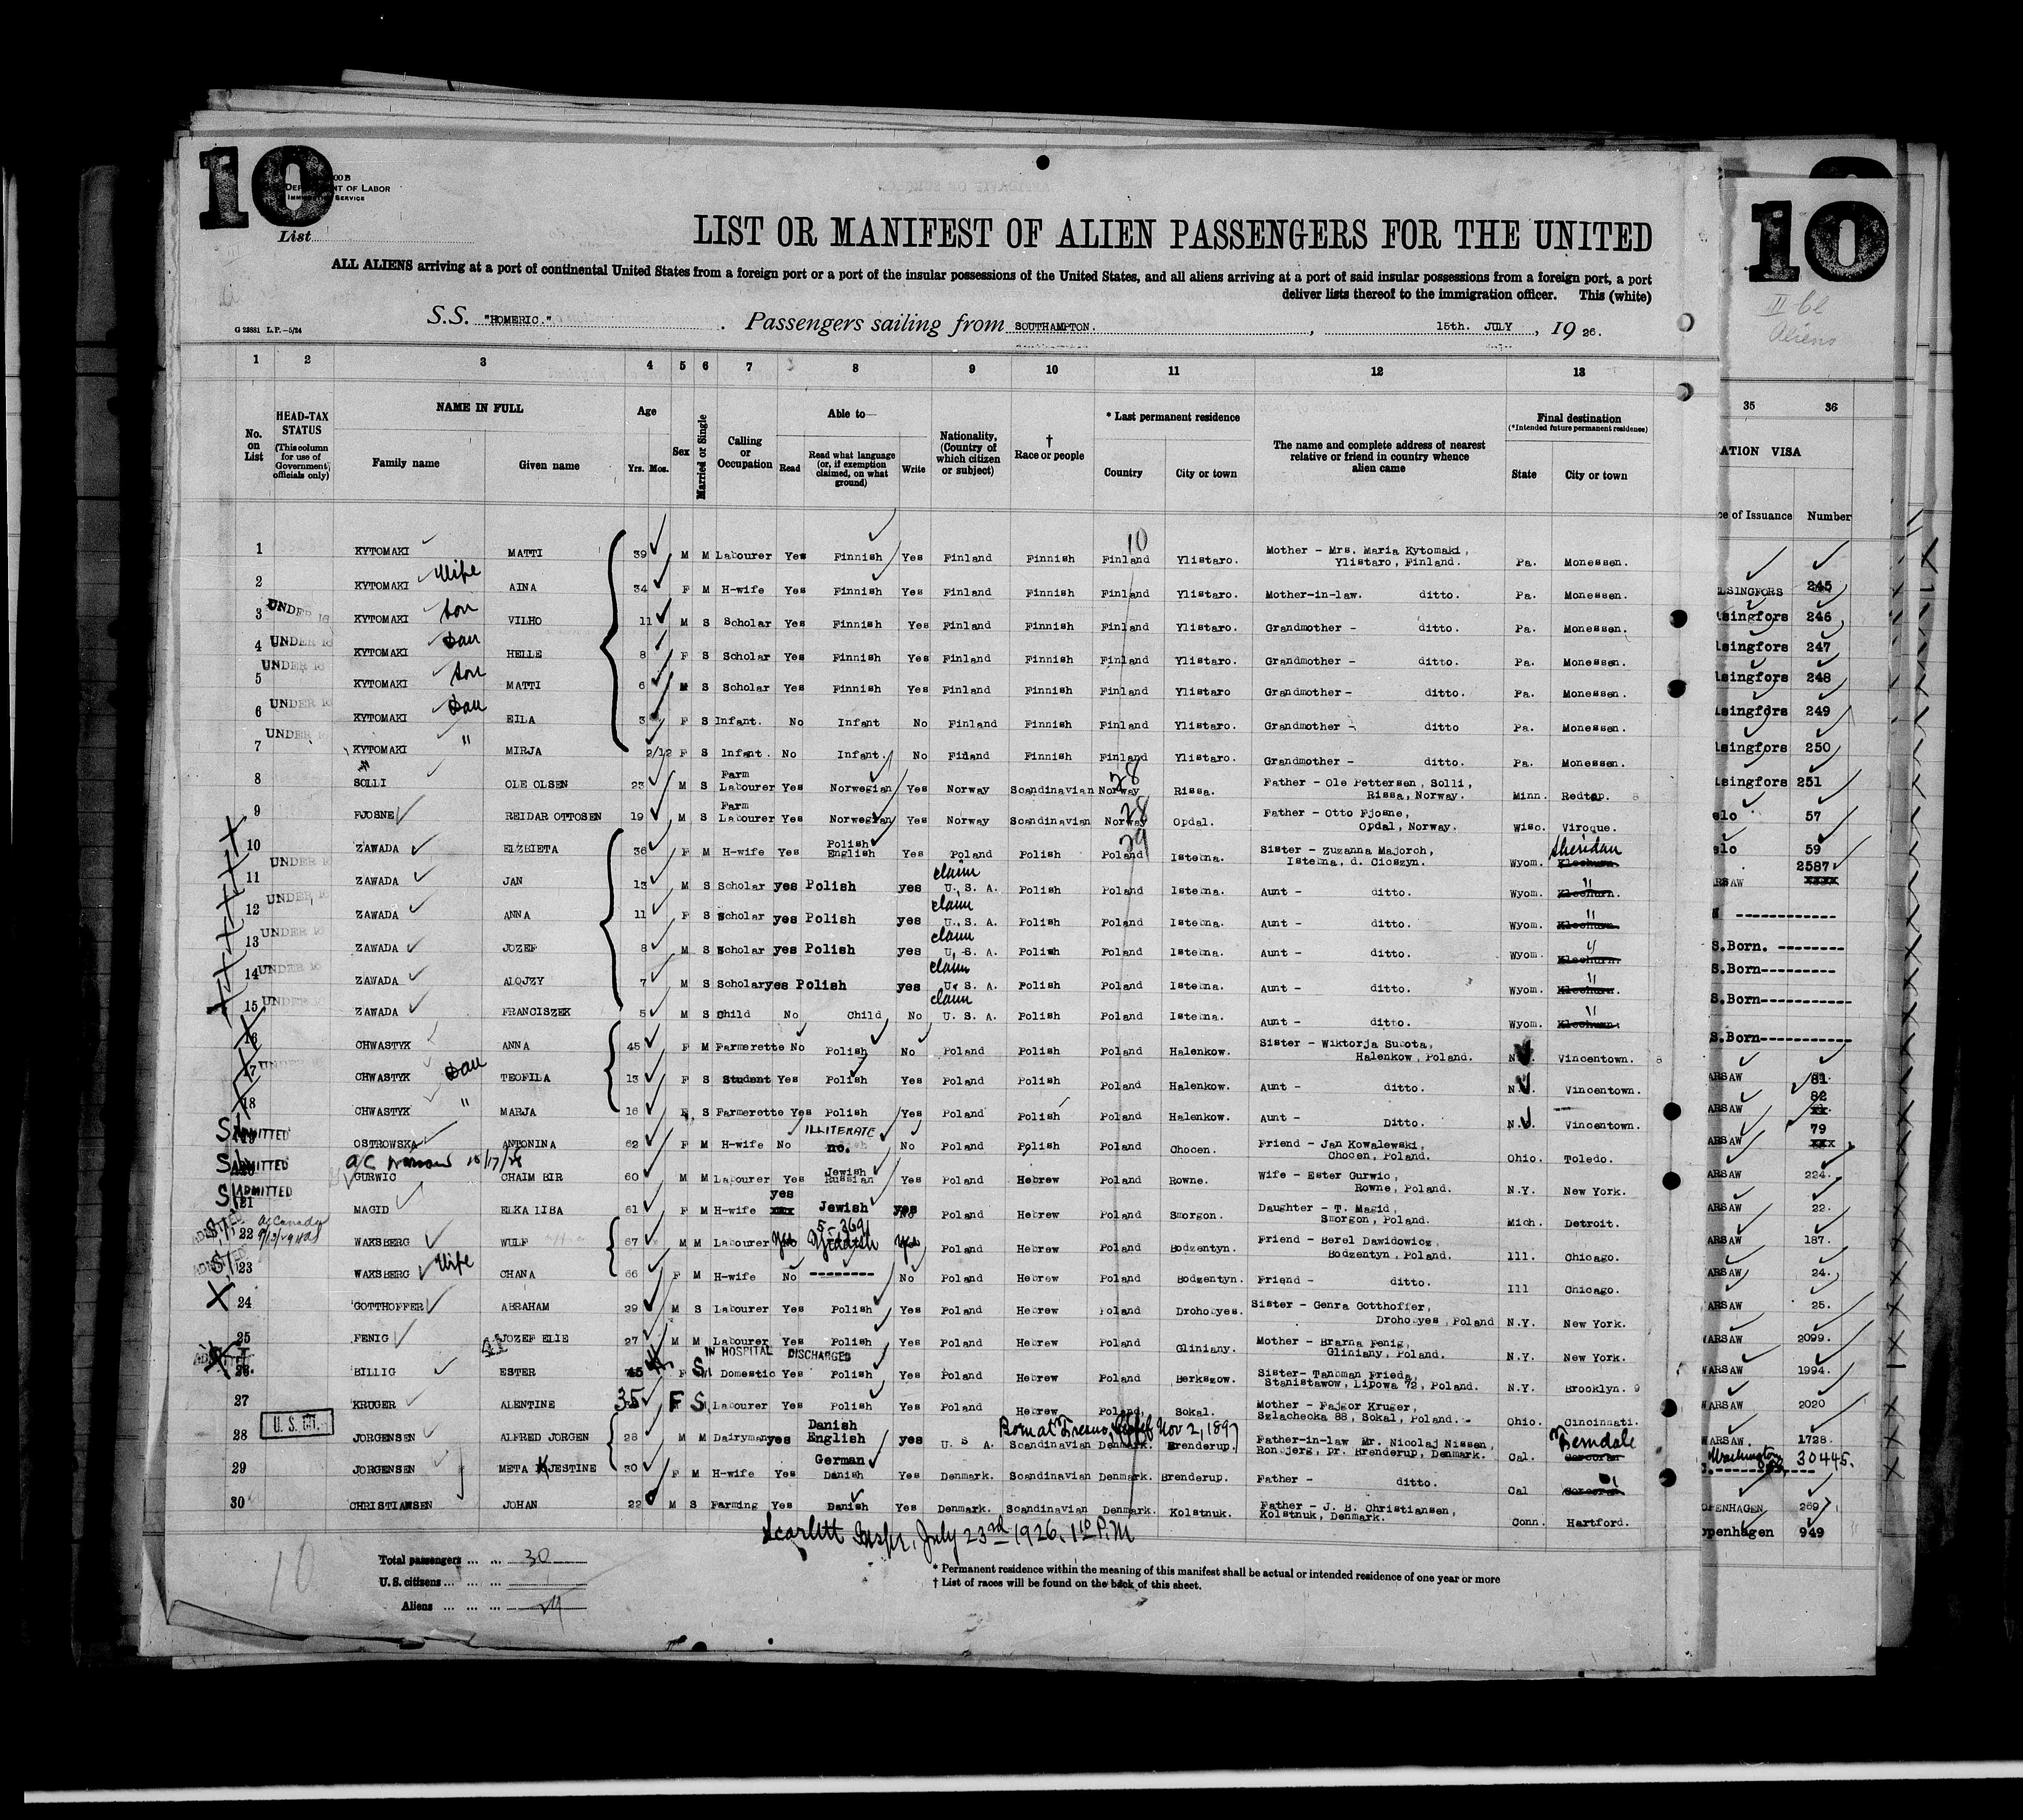 10
DEPARTMENT OF LABOR
IMMIGRATION SERVICE
List
LIST OR MANIFEST OF ALIEN PASSENGERS FOR THE UNITED
ALL ALIENS arriving at a port of continental United States from a foreign port or a port of the insular possessions of the United States, and all aliens arriving at a port of said insular possessions from a foreign port, a port
deliver lists thereof to the immigration officer. This (white)
G 23881 L.P.—5/24
S.S. "HOMERIC." Passengers sailing from SOUTHAMPTON. , 15th. JULY , 19 26.
10
III Cl
Aliens
1 2 3 4 5 6 7 8 9 10 11 12 13 35 36
No. on List
HEAD-TAX STATUS (This column for use of Government officials only)
NAME IN FULL Family name Given name
Age Yrs. Mos.
Sex
Married or Single
Calling or Occupation
Able to— Read Read what language (or, if exemption claimed, on what ground) Write
Nationality, (Country of which citizen or subject)
† Race or people
* Last permanent residence Country City or town
The name and complete address of nearest relative or friend in country whence alien came
Final destination (*Intended future permanent residence) State City or town
ATION VISA
ce of Issuance Number
1 KYTOMAKI MATTI 39 M M Labourer Yes Finnish Yes Finland Finnish Finland 10 Ylistaro. Mother - Mrs. Maria Kytomaki, Ylistaro, Finland. Pa. Monessen.
2 KYTOMAKI Wife AINA 34 F M H-wife Yes Finnish Yes Finland Finnish Finland Ylistaro. Mother-in-law. ditto. Pa. Monessen. LSINGFORS 245
3 UNDER 16 KYTOMAKI Son VILHO 11 M S Scholar Yes Finnish Yes Finland Finnish Finland Ylistaro. Grandmother - ditto. Pa. Monessen. lsingfors 246
4 UNDER 16 KYTOMAKI Dau HELLE 8 F S Scholar Yes Finnish Yes Finland Finnish Finland Ylistaro. Grandmother - ditto. Pa. Monessen. lsingfors 247
5 UNDER 16 KYTOMAKI Son MATTI 6 M S Scholar Yes Finnish Yes Finland Finnish Finland Ylistaro Grandmother - ditto. Pa. Monessen. lsingfors 248
6 UNDER 16 KYTOMAKI Dau EILA 3 F S Infant. No Infant No Finland Finnish Finland Ylistaro. Grandmother - ditto Pa. Monessen. lsingfors 249
7 UNDER 16 KYTOMAKI " MIRJA 2/12 F S Infant. No Infant. No Finland Finnish Finland Ylistaro. Grandmother - ditto. Pa. Monessen. lsingfors 250
8 SOLLI OLE OLSEN 23 M S Farm Labourer Yes Norwegian Yes Norway Scandinavian Norway 28 Rissa. Father - Ole Pettersen, Solli, Rissa, Norway. Minn. Redtop. lsingfors 251
9 FJOSNE REIDAR OTTOSEN 19 M S Farm Labourer Yes Norwegian Yes Norway Scandinavian Norway 28 Opdal. Father - Otto Fjosne, Opdal, Norway. Wisc. Viroque. slo 57
10 ZAWADA ELZBIETA 36 F M H-wife Yes Polish English Yes Poland Polish Poland 29 Istebna. Sister - Zuzanna Majorch, Istebna, d. Cieszyn. Wyom. Sheridan slo 59
11 UNDER 16 ZAWADA JAN 13 M S Scholar yes Polish yes claim U.S.A. Polish Poland Istebna. Aunt - ditto. Wyom. " ARSAW 2587
12 UNDER 16 ZAWADA ANNA 11 F S Scholar yes Polish yes claim U.S.A. Polish Poland Istebna. Aunt - ditto. Wyom. "
13 UNDER 16 ZAWADA JOZEF 8 M S Scholar yes Polish yes claim U.S.A. Polish Poland Istebna. Aunt - ditto. Wyom. " S.Born. --------
14 UNDER 16 ZAWADA ALOJZY 7 M S Scholar yes Polish yes claim U.S.A. Polish Poland Istebna. Aunt - ditto. Wyom. " S.Born----------
15 UNDER 16 ZAWADA FRANCISZEK 5 M S Child No Child No claim U.S.A. Polish Poland Istebna. Aunt - ditto. Wyom. " S.Born------------
16 CHWASTYK ANNA 45 F M Farmerette No Polish No Poland Polish Poland Halenkow. Sister - Wiktorja Subota, Halenkow, Poland. N.J. Vincentown. S.Born------------
17 CHWASTYK Dau TEOFILA 13 F S Student Yes Polish Yes Poland Polish Poland Halenkow. Aunt - ditto. N.J. Vincentown. ARSAW 81
18 CHWASTYK " MARJA 16 F S Farmerette Yes Polish Yes Poland Polish Poland Halenkow. Aunt - Ditto. N.J. Vincentown. ARSAW 82
19 SI ADMITTED OSTROWSKA ANTONINA 62 F M H-wife No ILLITERATE no. No Poland Polish Poland Chocen. Friend - Jan Kowalewski, Chocen, Poland. Ohio. Toledo. ARSAW 79
20 SI ADMITTED GURWIC CHAIM BIR 60 M M Labourer Yes Jewish Russian Yes Poland Hebrew Poland Rowne. Wife - Ester Gurwic, Rowne, Poland. N.Y. New York. ARSAW 224.
21 SI ADMITTED MAGID ELKA LIBA 61 F M H-wife yes Jewish yes Poland Hebrew Poland Smorgon. Daughter - T. Magid, Smorgon, Poland. Mich. Detroit. ARSAW 22.
22 SI WAKSBERG WULF 67 M M Labourer Yes Yiddish Yes Poland Hebrew Poland Bodzentyn. Friend - Berel Dawidowicz, Bodzentyn, Poland. Ill. Chicago. ARSAW 187.
23 SI WAKSBERG Wife CHANA 66 F M H-wife No -------- No Poland Hebrew Poland Bodzentyn. Friend - ditto. Ill Chicago. ARSAW 24.
24 GOTTHOFFER ABRAHAM 29 M S Labourer Yes Polish Yes Poland Hebrew Poland Drohobyes. Sister - Genra Gotthoffer, Drohobyes, Poland N.Y. New York. ARSAW 25.
25 FENIG JOZEF ELIE 27 M M Labourer Yes Polish Yes Poland Hebrew Poland Gliniany. Mother - Brarna Fenig, Gliniany, Poland. N.Y. New York. WARSAW 2099.
IN HOSPITAL DISCHARGED
26. BILLIG ESTER F S Domestic Yes Polish Yes Poland Hebrew Poland Berkszow. Sister- Tanbman Frieda, Stanistawow, Lipowa 72, Poland. N.Y. Brooklyn. WARSAW 1994.
27 KRUGER ALENTINE 35 F S Labourer Yes Polish Yes Poland Hebrew Poland, Sokal. Mother - Fajgor Kruger, Szlachecka 88, Sokal, Poland. - Ohio. Cincinnati. WARSAW 2020
28 U.S. CIT. JORGENSEN ALFRED JORGEN 28 M M Dairyman yes Danish English yes U.S.A. Born at Fresno, Calif Nov 2, 1897 Scandinavian Denmark. Brenderup. Father-in-law Mr. Nicolaj Nissen, Ronbjerg, pr. Brenderup, Denmark. Cal. Ferndale WARSAW. 1728.
29 JORGENSEN META KJESTINE 30 F M H-wife Yes German Danish Yes Denmark. Scandinavian Denmark. Brenderup. Father - ditto. Cal Washington 30445.
30 CHRISTIANSEN JOHAN 22 M S Farming Yes Danish Yes Denmark. Scandinavian Denmark. Kolstnuk. Father - J. B. Christiansen, Kolstnuk, Denmark. Conn. Hartford. OPENHAGEN 269
openhagen 949
Scarlett Inspr. July 23rd 1926. 1 10 P.M
10
Total passengers ... ... 30
U.S. citizens ... ... ... 1
Aliens ... ... ...
* Permanent residence within the meaning of this manifest shall be actual or intended residence of one year or more
† List of races will be found on the back of this sheet.